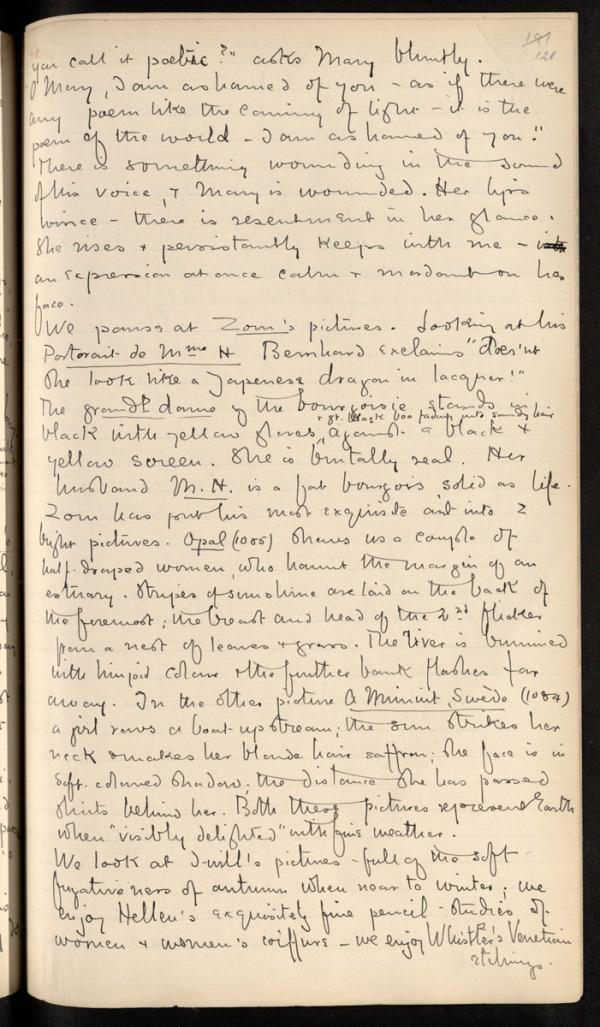 121
you call it poetic?" asks Mary bluntly.
O Mary, I am ashamed of you – as if there were
any poem like the coming of light – it is the
poem of the world – I am ashamed of you."
There is something wounding in the sound
of his voice, & Mary is wounded. Her lips
wince – there is resentment in her glance.
She rises & persistantly keeps with me –
an expression at once calm & mordant on her
face.
We pause at Zorn's pictures. Looking at his
Portrait de Mme H Bernhard exclaims "does'nt
she look like a Japenese dragon in lacquer!"
The grande dame of the bourgoisie stands in
& gt. black boa fading into sandy hair
black with yellow gloves, against a black &
yellow screen. She is brutally real. Her
husband M. H. is a fat bourgois, solid as life.
Zorn has put his most exquisite art into 2
bright pictures. Opal (1085) shews us a couple of
half-draped women, who haunt the margin of an
estuary. Stripes of sunshine are laid on the back of
the foremost; the breast and head of the 2nd flicker
from a nest of leaves & grass. The river is
with colour & the further bank flashes far
away. In the other picture A Minuit, Suède (1084)
a girl rows a boat up stream; the sun strikes her
neck & makes her blonde hair saffron; the face is in
soft-coloured shadow; the distance she has passed
shuts behind her. Both these pictures represent Earth
when "visibly delighted" with fine weather.
We look at pictures – full of the soft
fugativeness of autumn when near to winter; we
enjoy Hellen's exquisitely fine pencil-studies of
women & women's coiffure – we enjoy Whistler's Venetian
etchings.